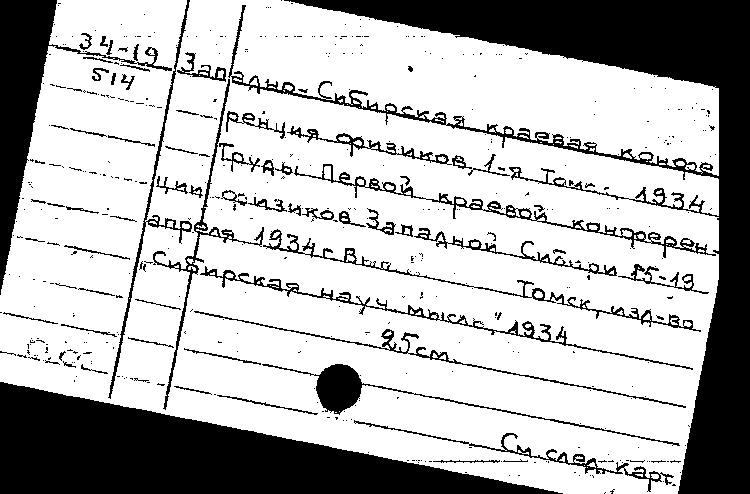 34-19
514
Западно-Сибирская краевая конфе
ренция физиков, 1-я Томск, 1934.
Труды Первой краевой конферен-
ции физиков Западной Сибири 15-19
апреля 1934 г. Вып. Томск, изд-во
"Сибирская науч. мысль," 1934.
25 см.
См. след. карт.